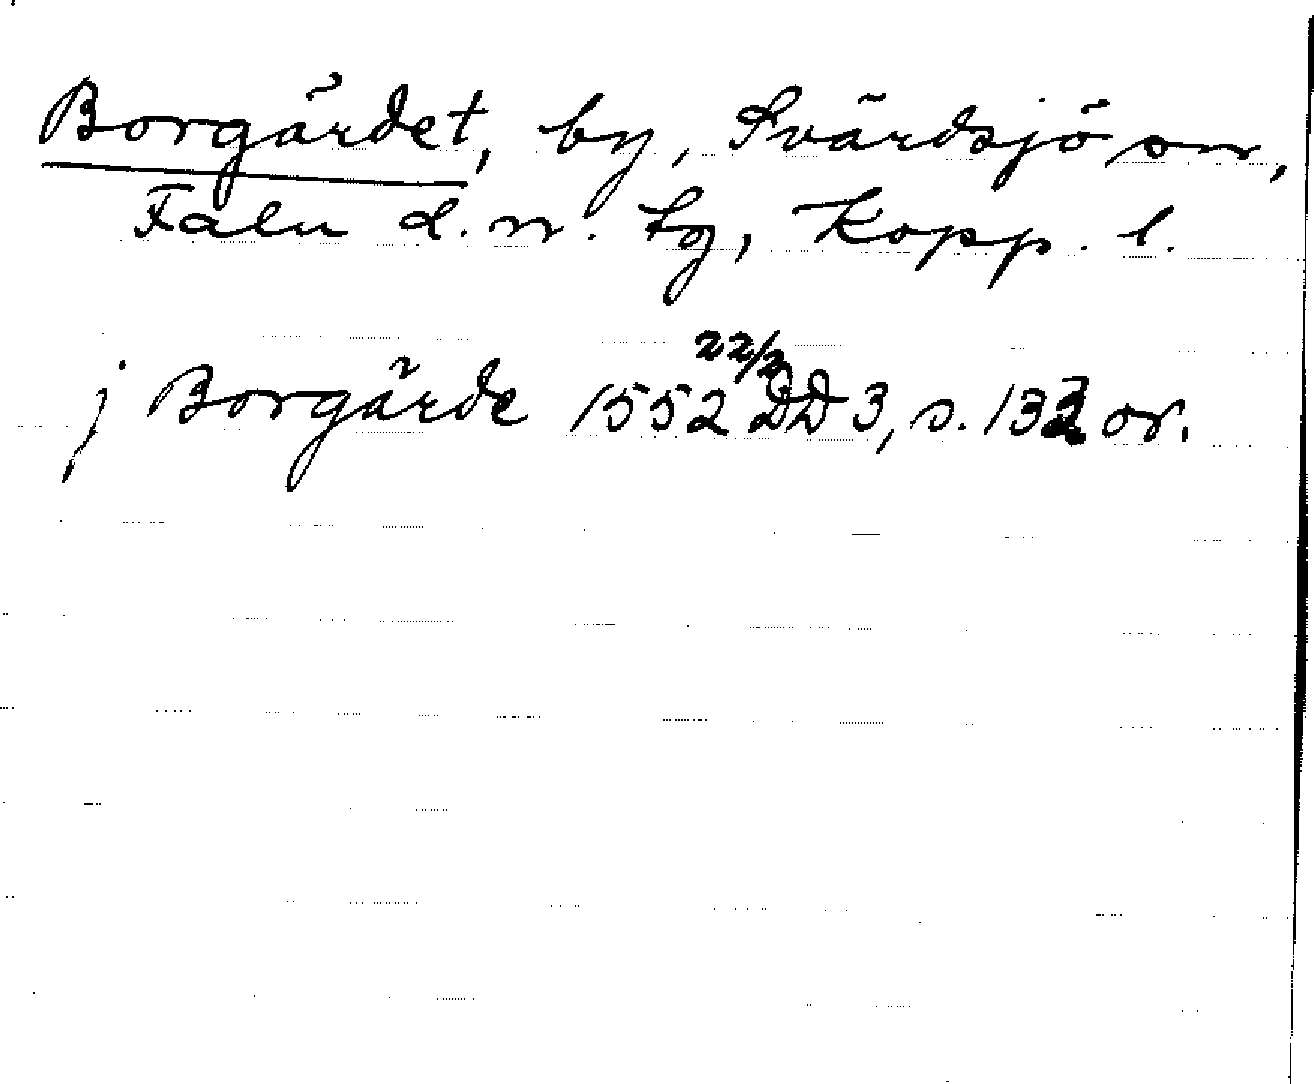 Borgärdet, by, Svärdsjö sn,
Falu d. n. tg, Kopp. l.
j Borgärde 1552 22/2 DD 3, s. 133 or.